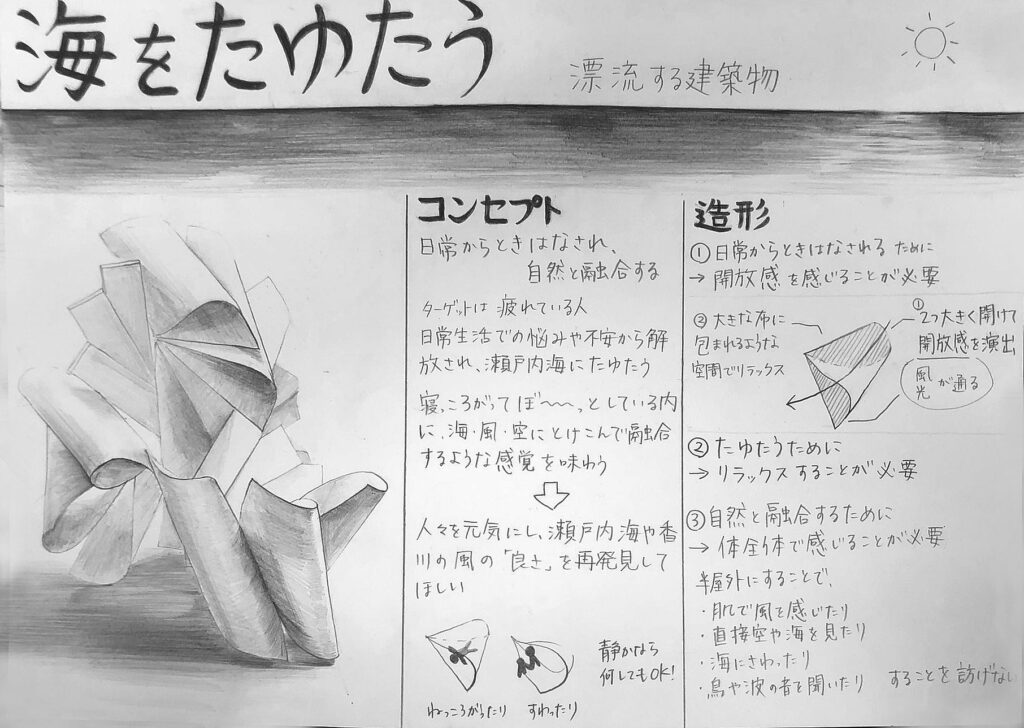 海をたゆたう
漂流する建築物
コンセプト
日常からときはなされ、
自然と融合する
ターゲットは 疲れている人
日常生活での悩みや不安から解
放され、瀬戸内海にたゆたう
寝っころがってぼ〜〜っとしている内
に、海・風・空にとけこんで融合
するような感覚を味わう
人々を元気にし、瀬戸内海や香
川の風の「良さ」を再発見して
ほしい
静かなら
何してもOK!
ねっころがったり
すわったり
造形
①日常からときはなされる ために
→ 開放感を感じることが必要
②大きな布に
包まれるような
空間でリラックス
①
2つ大きく開けて
開放感を演出
風
光 が通る
②たゆたうために
→ リラックスすることが必要
③自然と融合するために
→ 体全体で感じることが必要
半屋外にすることで、
・肌で風を感じたり
・直接空や海を見たり
・海にさわったり
・鳥や波の音を聞いたり
することを妨げない